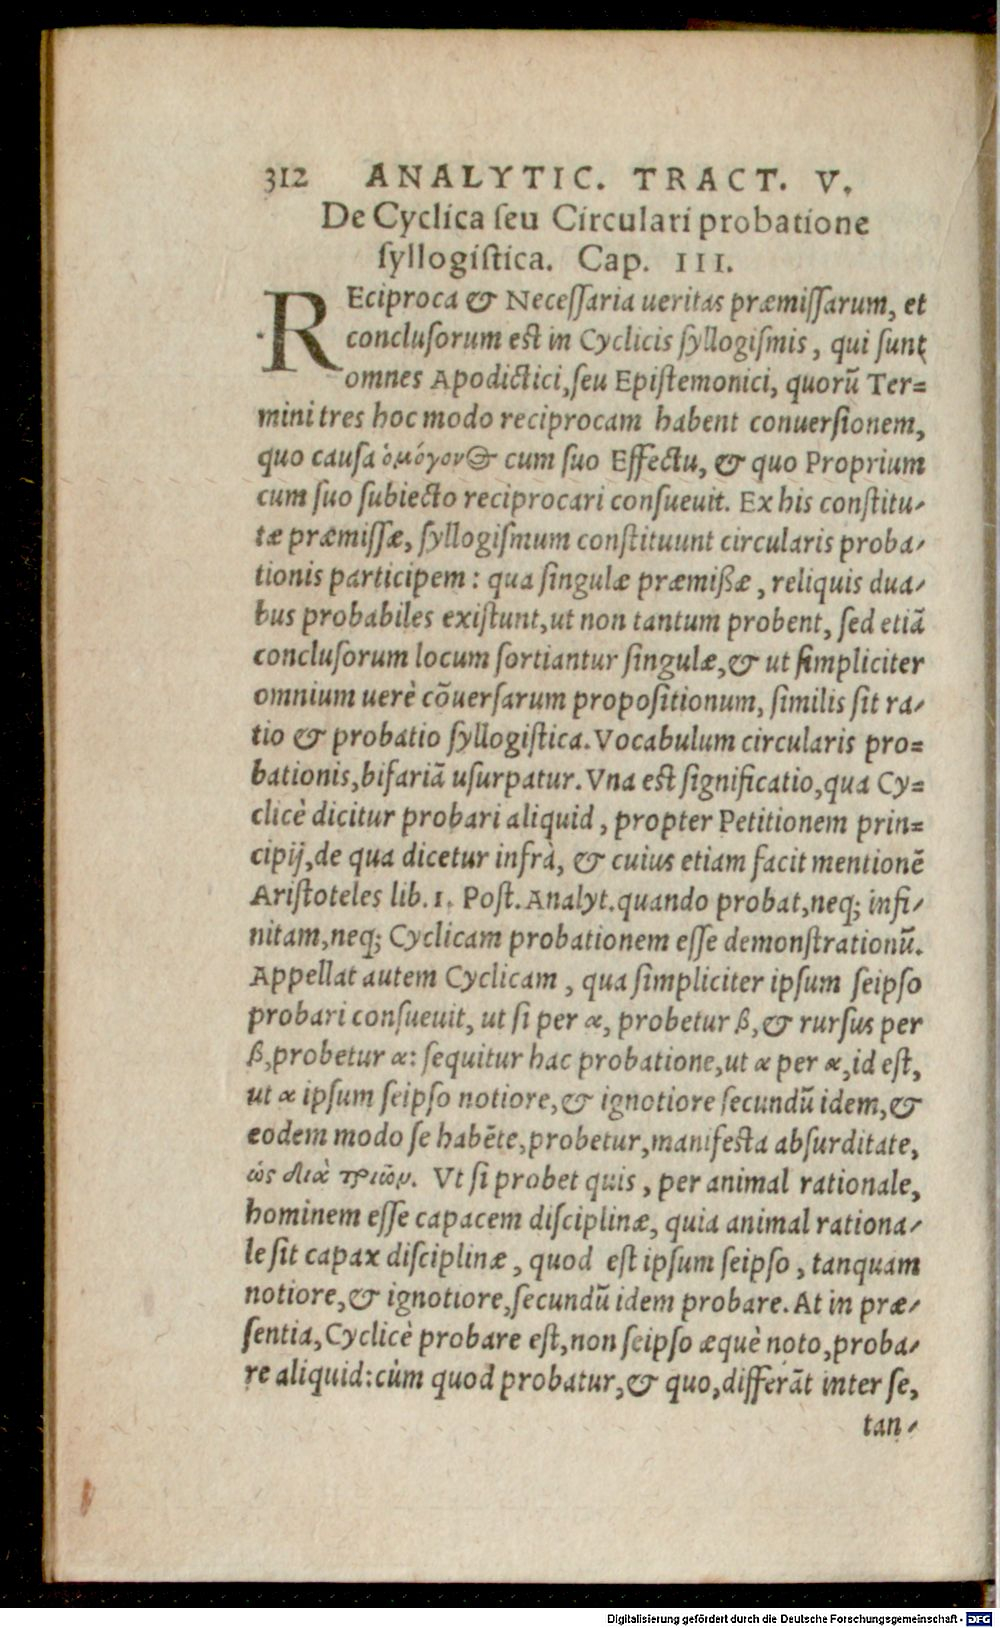 312 ANALYTIC. TRACT. V.
De Cyclica ſeu Circulari probatione
ſyllogiſtica. Cap. III.
REciproca & Neceſſaria ueritas præmiſſarum, et
concluſorum est in Cyclicis ſyllogiſmis, qui ſunt
omnes Apodictici, ſeu Epiſtemonici, quorũ Ter=
mini tres hoc modo reciprocam habent conuerſionem,
quo cauſa ὁμόγονος cum ſuo Effectu, & quo Proprium
cum ſuo ſubiecto reciprocari conſueuit. Ex his conſtitu-
tæ præmiſſæ, ſyllogiſmum conſtituunt circularis proba-
tionis participem: qua ſingulæ præmißæ, reliquis dua-
bus probabiles exiſtunt, ut non tantum probent, ſed etiã
concluſorum locum ſortiantur ſingulæ, & ut ſimpliciter
omnium uerè cõuerſarum propoſitionum, ſimilis ſit ra-
tio & probatio ſyllogiſtica. Vocabulum circularis pro=
bationis, bifariã uſurpatur. Vna est ſignificatio, qua Cy=
clicè dicitur probari aliquid, propter Petitionem prin=
cipij, de qua dicetur infrà, & cuius etiam facit mentionẽ
Ariſtoteles lib. 1. Poſt. Analyt. quando probat, neq; infi-
nitam, neq; Cyclicam probationem eſſe demonſtrationũ.
Appellat autem Cyclicam, qua ſimpliciter ipſum ſeipſo
probari conſueuit, ut ſi per α, probetur ß, & rurſus per
ß, probetur α: ſequitur hac probatione, ut α per α, id eſt,
ut α ipſum ſeipſo notiore, & ignotiore ſecundũ idem, &
eodem modo ſe habẽte, probetur, manifeſta abſurditate,
ὡς διὰ τριῶν. Vt ſi probet quis, per animal rationale,
hominem eſſe capacem diſciplinæ, quia animal rationa-
le ſit capax diſciplinæ, quod eſt ipſum ſeipſo, tanquam
notiore, & ignotiore, ſecundũ idem probare. At in præ-
ſentia, Cyclicè probare eſt, non ſeipſo æquè noto, proba-
re aliquid: cùm quod probatur, & quo, differãt inter ſe,
tan-
Digitalisierung gefördert durch die Deutsche Forschungsgemeinschaft - DFG